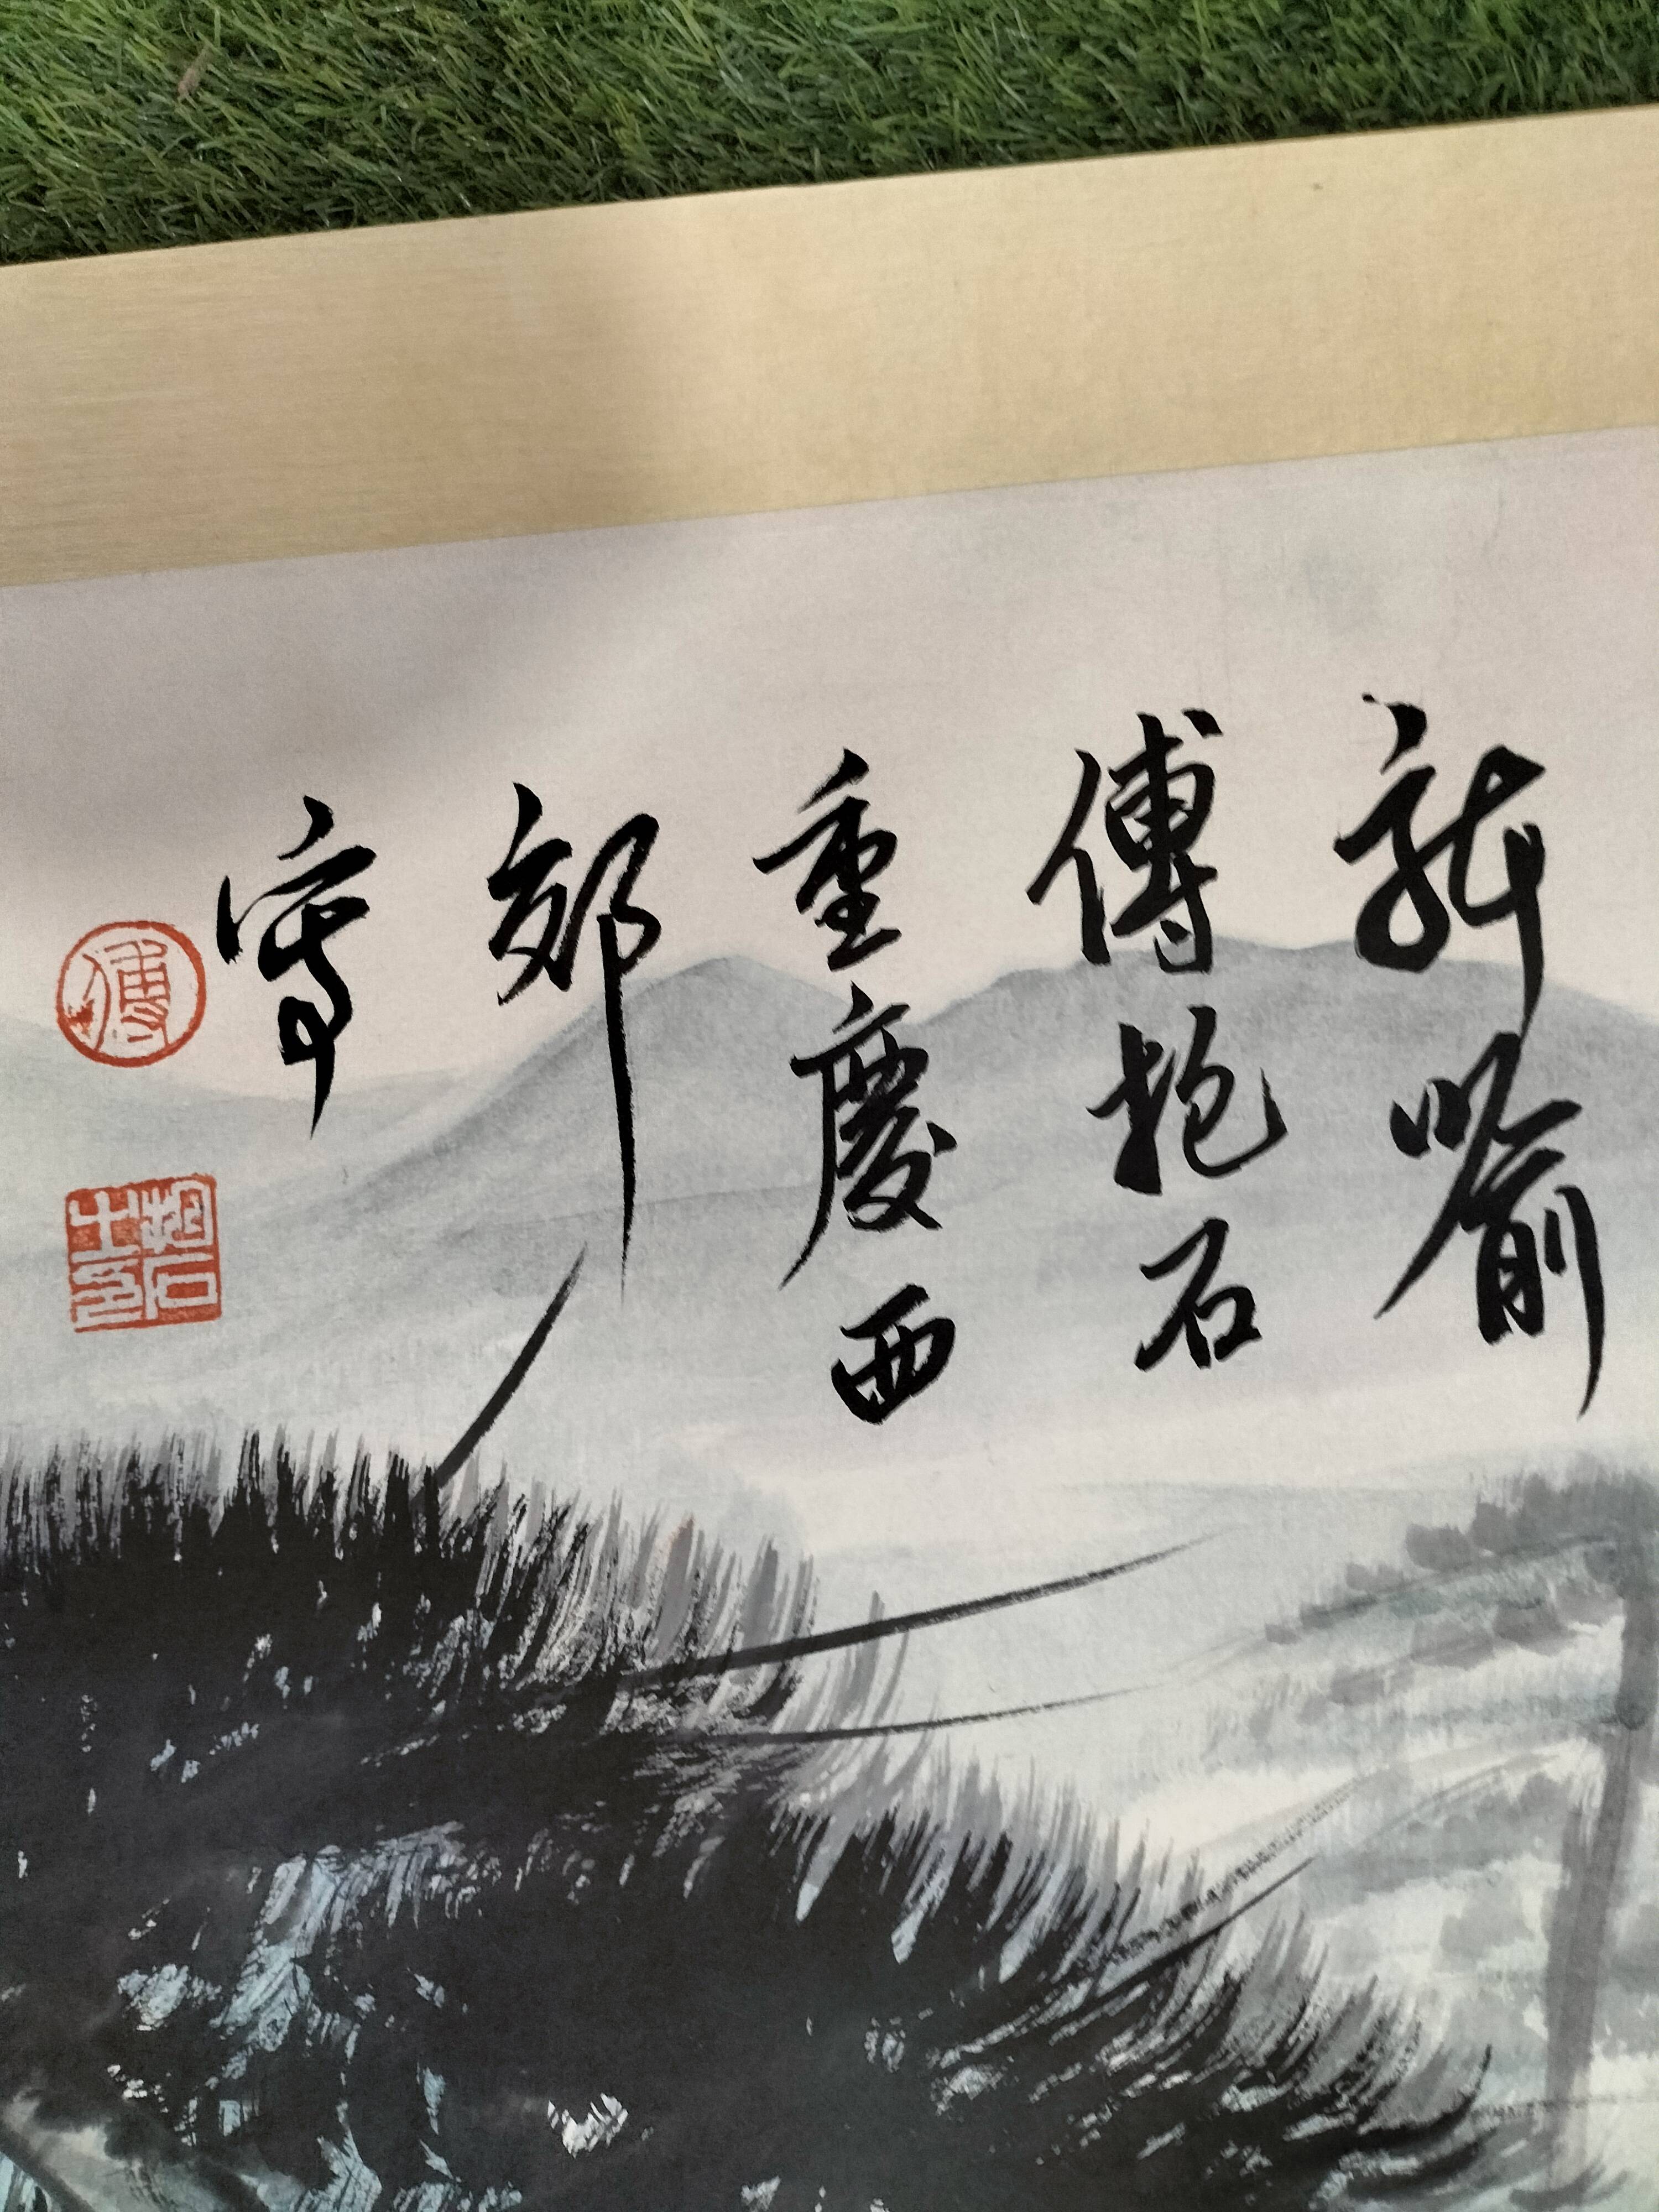 新喻
傅抱石
重慶西
郊
寫
傅
抱石
之印